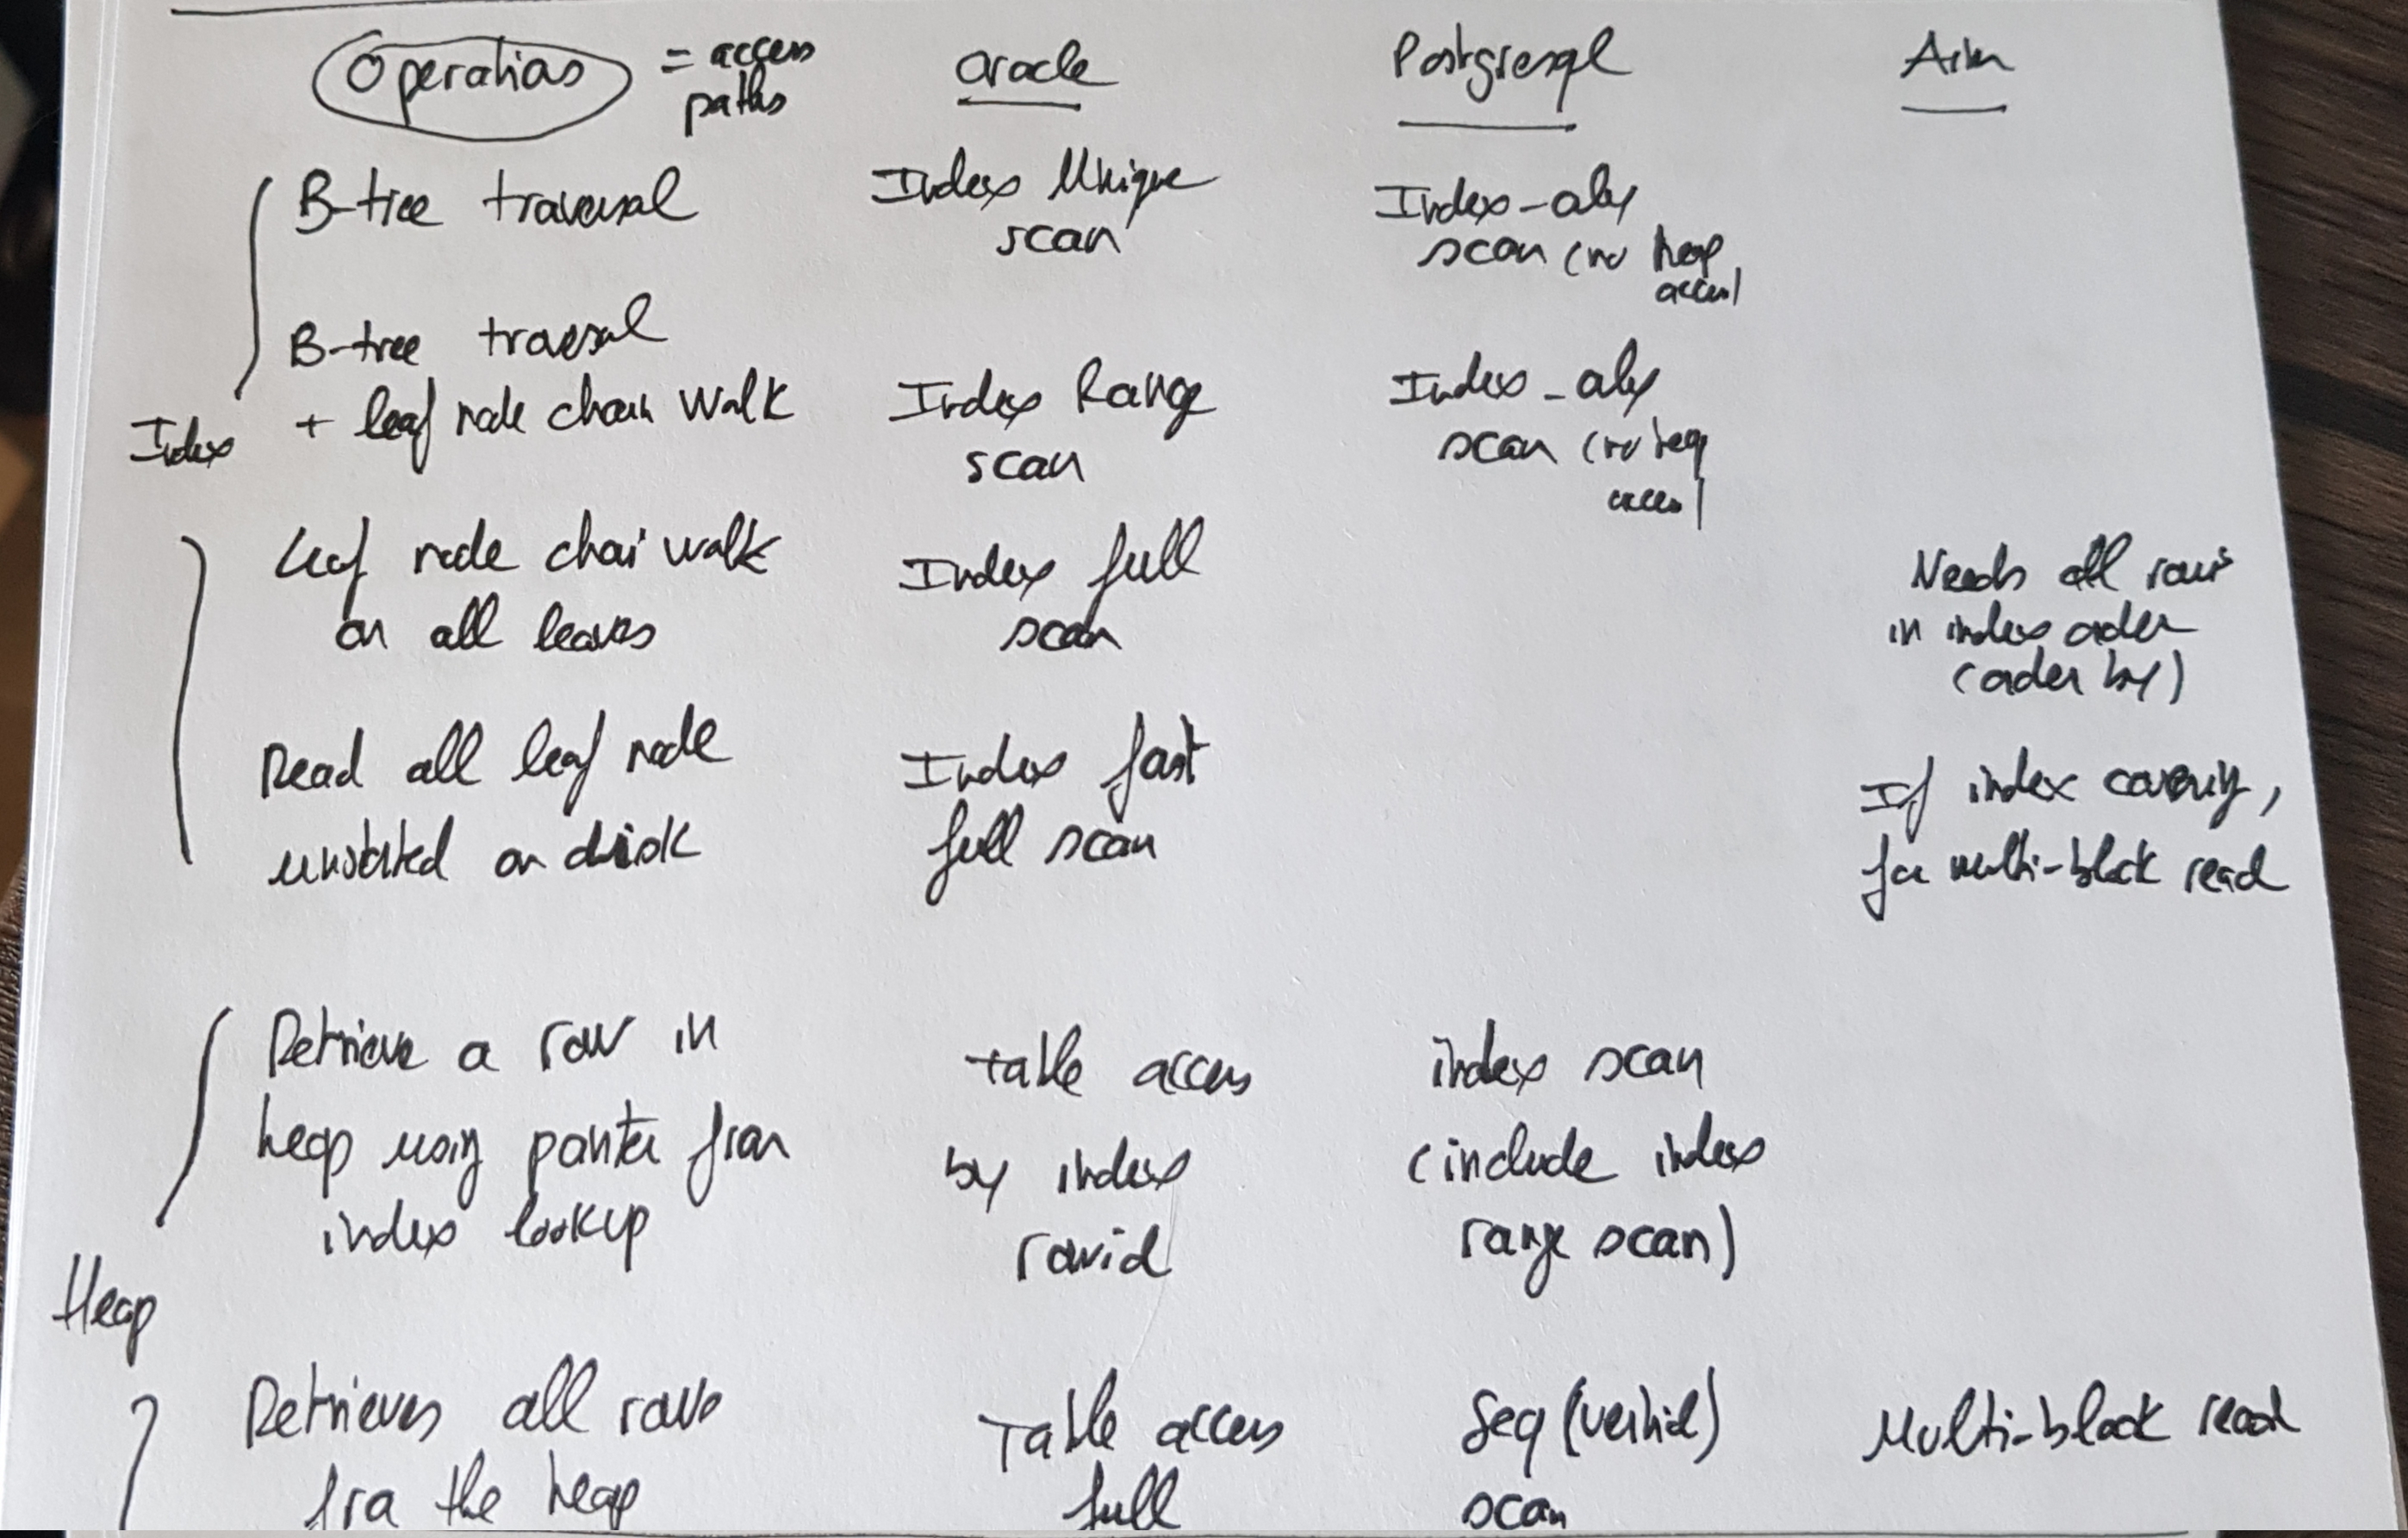 Operations = access paths
Oracle
Postgresql
Aim
B-tree traversal
Index Unique
scan
Index-only
scan (no heap
access)
B-tree traversal
+ leaf node chain walk
Index Range
scan
Index-only
scan (no heap
access)
Index
Leaf node chain walk
on all leaves
Index full
scan
Needs all rows
in index order
(order by)
Read all leaf node
unsorted on disk
Index fast
full scan
If index covering,
for multi-block read
Retrieve a row in
heap using pointer from
index lookup
table access
by index
rowid
index scan
(include index
range scan)
Heap
Retrieves all rows
from the heap
Table access
full
Seq(uential)
scan
Multi-block read